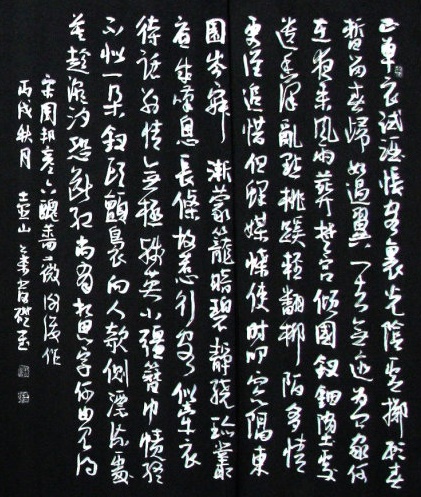 正單衣試酒悵客裏光陰虛擲願春
暫留春歸如過翼一去無迹為問家何
在夜來風雨葬楚宮傾國釵鈿墮處
遺香澤亂點桃蹊輕翻柳陌多情
更誰追惜但蜂媒蝶使時叩窗隔東
園岑寂漸蒙籠暗碧靜繞珍叢
底成嘆息長條故惹行客似牽衣
待話別情無極殘英小強簪巾幘終
不似一朵釵頭顫裊向人欹側漂流處
莫趁潮汐恐斷紅尚有相思字何由見得
宋周邦彥六醜薔薇謝後作
丙戌秋月壺山